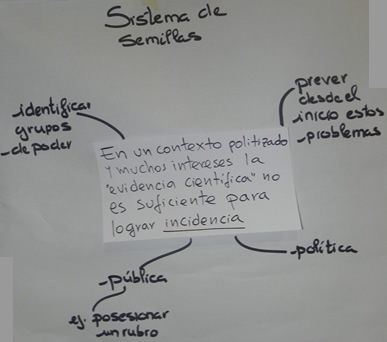 Sistema de
Semillas
identificar
grupos
de poder
prever
desde el
inicio estos
problemas
En un contexto politizado
y muchos intereses la
"evidencia científica" no
es suficiente para
lograr incidencia
-pública
-política
ej. posesionar
un rubro